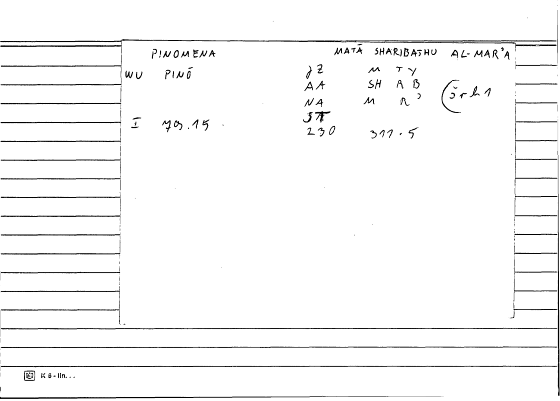 PINOMENA MATĀ SHARIBATHU AL-MAR'A
WU PINŌ JZ M T Y
AA SH R B
NA M R '
I 79.15
230 311.5
K 6 - lin...